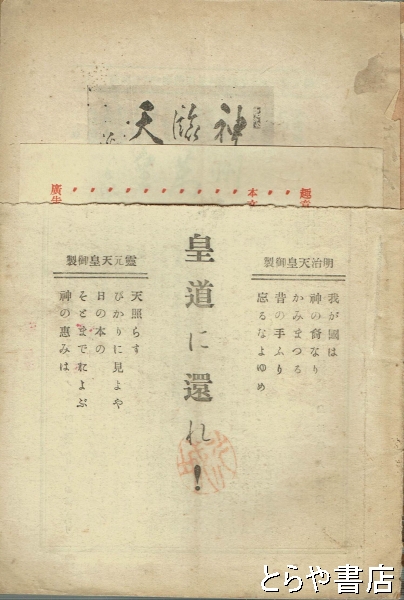 神臨天
趣意
本文
廣告
明治天皇御製
我が國は
神の裔なり
かみまつる
昔の手ふり
忘るなよゆめ
皇道に還れ!
靈元天皇御製
天照らす
ひかりに見よや
日の本の
そとまでおよぶ
神の惠みは
とらや書店